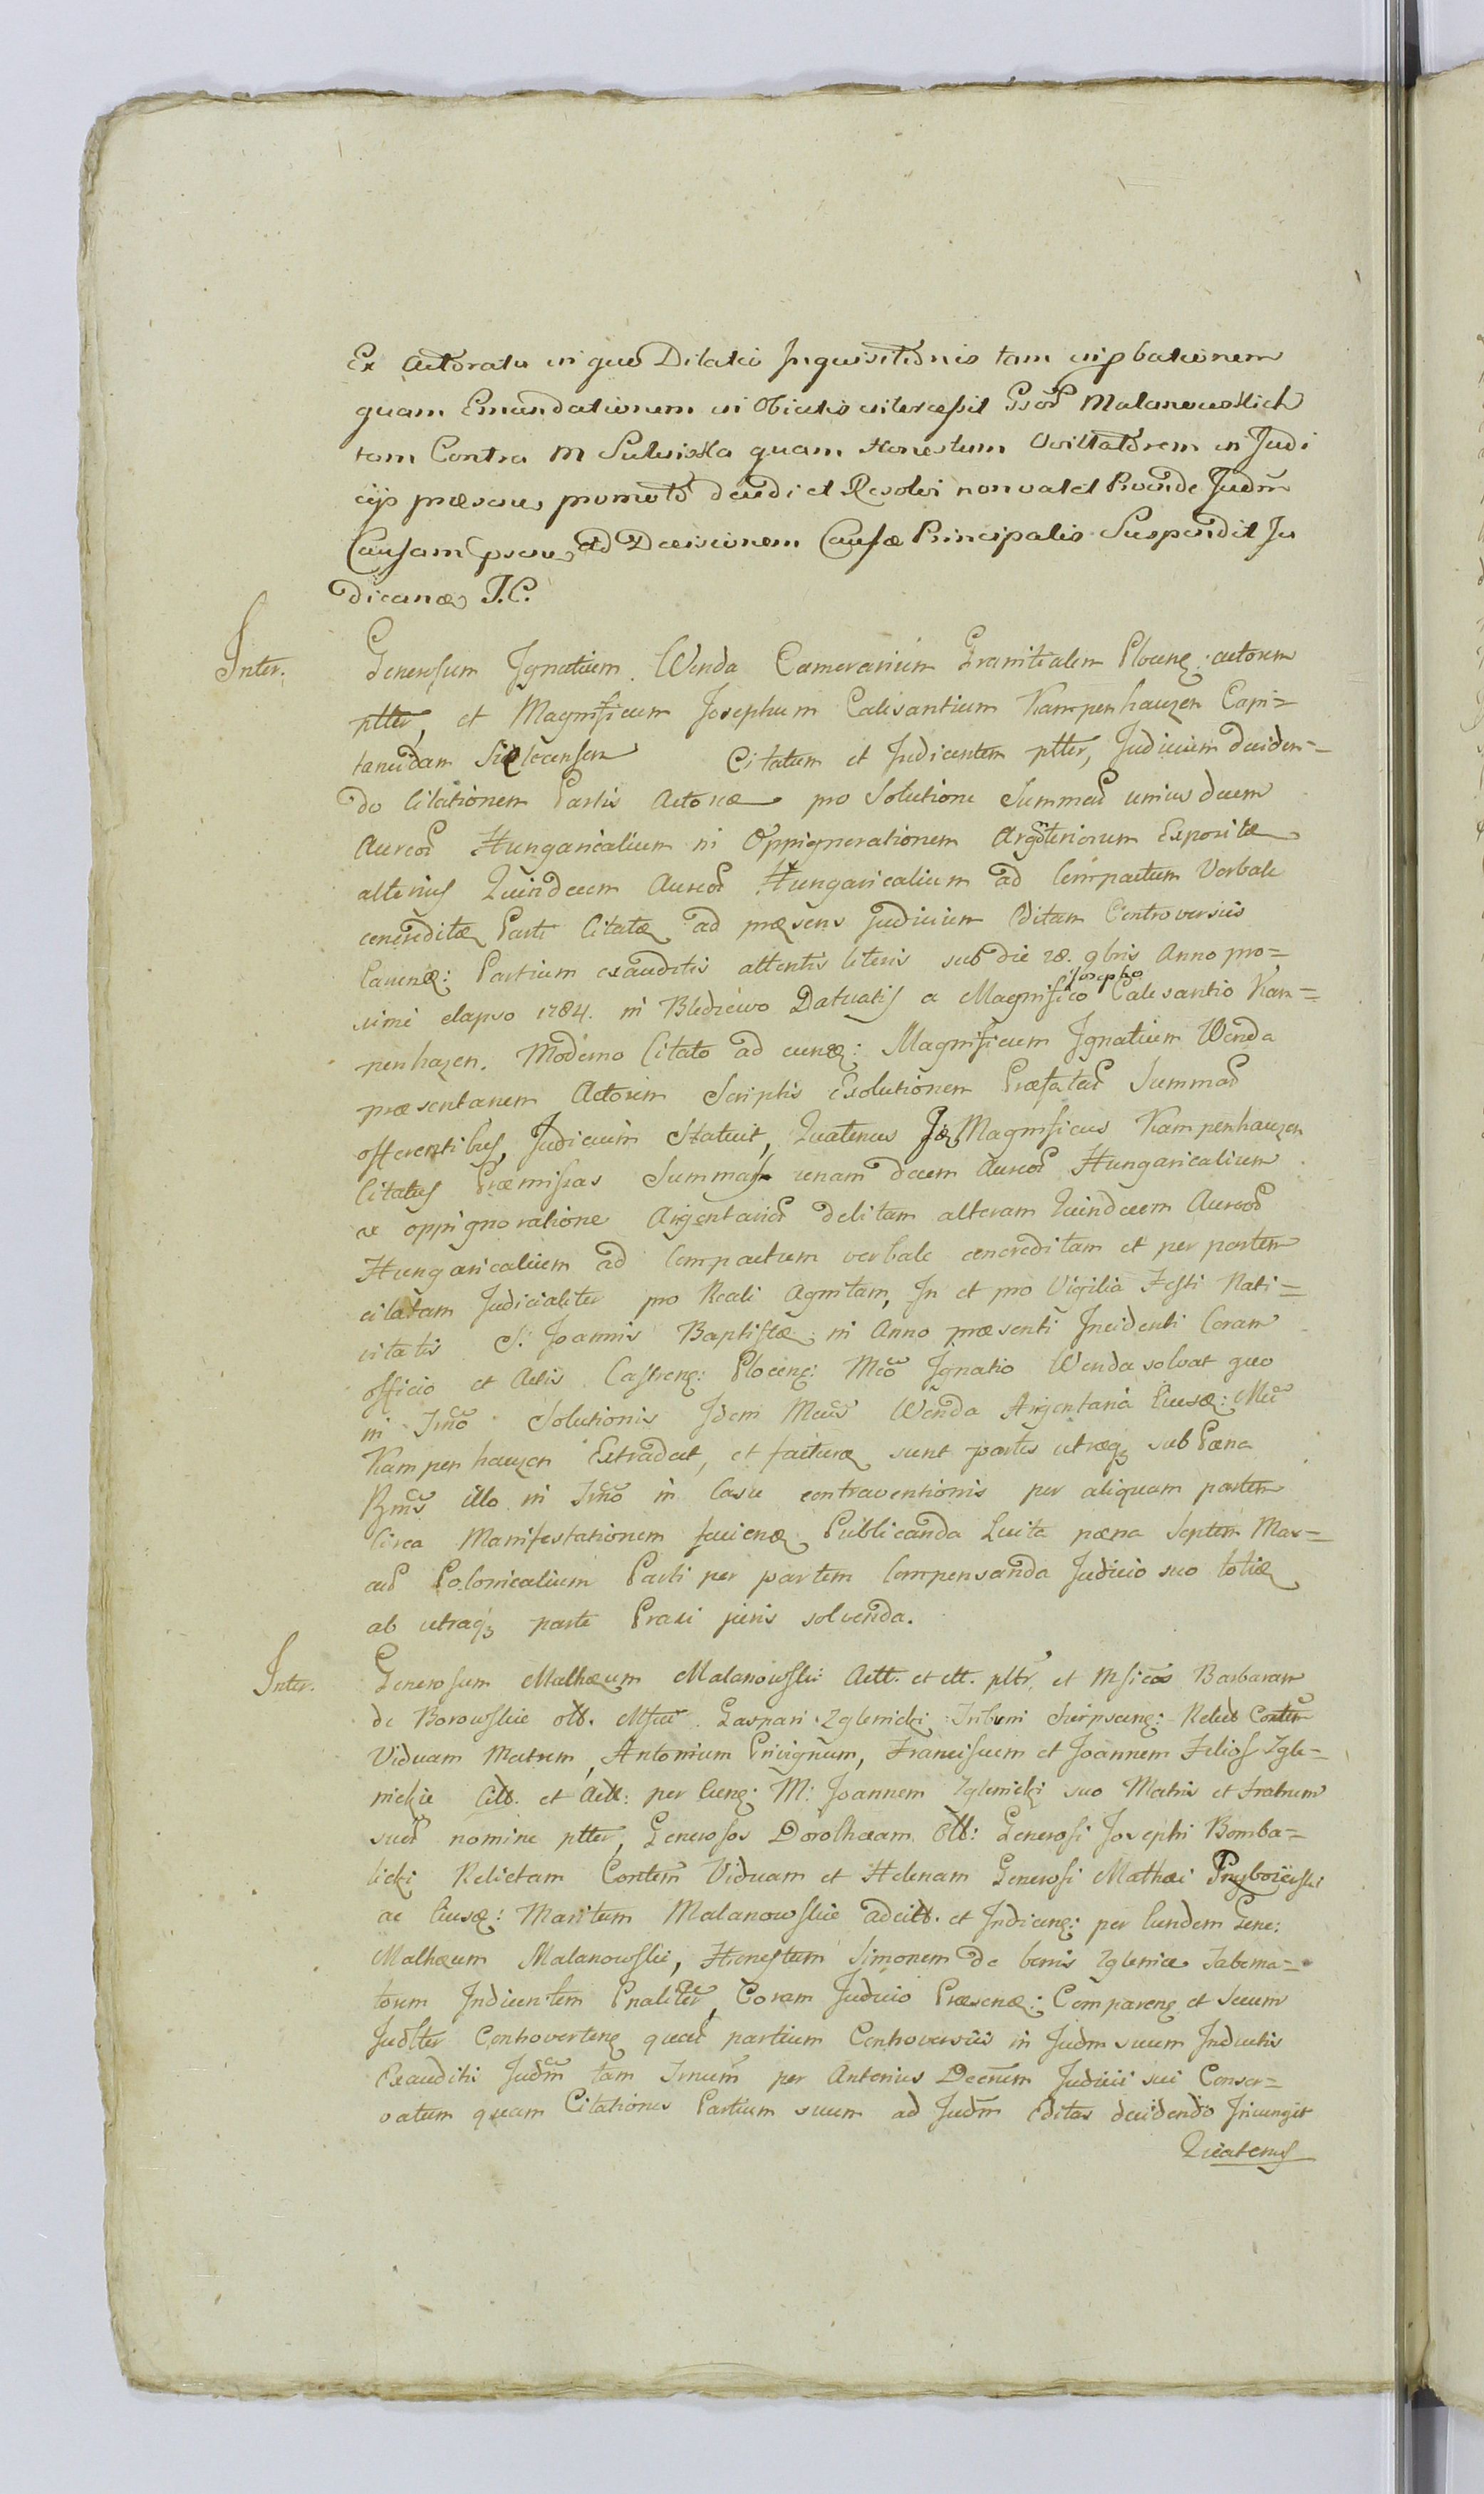 Ex Actoratu in quo Dilatio Inquisitionis tam in pbationem
quam Emundationem in Obiectis intercessit Gsor Malanowskich
tam Contra M quam Honestum in Judi
cijs præsens promoto decidi et Resolvi non valet Proinde Judm
Causam psens ad Decisionem Causæ Principalis Suspendit Ju
dicanæ J.C.
Inter. Generosum Ignatium Wenda Camerarium Granitialem Plocens: actorem
pltter, et Magnificum Josephum Calisantium Kampenhauzen Capi=
taneidam Citatum et Indicentem pltter, Judicium deciden=
do Citationem Partis Actoreæ pro Solutione Summar unius decem
Aureor Hungaricalium in Oppignerationem Expositæ
alterius Quindecem Aureor Hungaricalium ad Compactum Verbale
concreditæ Parti Citatæ ad præsens judicium Editam Controversiis
Partium exauditis attentis literis sub die 28. 9bris Anno pro=
ximi elapso 1784. in Datuatis a Magnifico Josepho Calisantio Kam=
penhazen. Moderno Citato ad eunq: Magnificum Ignatium Wenda
præsentanem Actorem Scriptis Exolutionem Præfatar Summar
offerentibus, Judicium Statuit, Quatenus Magnificus Kampenhauzen
Citatus Præmissas Summas unam decem Aureor Hungaricalium
ex oppignoratione Argentarior debitam alteram Quindecem Aureor
Hungaricalium ad Compactum verbale concreditam et per partem
citatam Judicialiter pro Reali Agnitam, In et pro Vigilia Festi Nati=
vitatis S. Joannis Baptistæ in Anno præsenti Incidenti Coram
officio et Actis Castrens: Plocens: Mco Ignatio Wenda solvat quo
in Tmno Solutionis Idem Mcus Wenda Argentaria Eiusq: Mco
Kampenhauzen Extradat, et facturæ sunt partes utræq sub Pæna
illo in Tmno in Casu contraventionis per aliquam partem
Circa Manifestationem faciens Publicanda Luita pæna Septem Mar=
car Polonicalium Parti per partem Compensanda Judicio suo toties
ab utraq parte Praxi juris solvenda.
Inter. Generosum Mathæum Malanowski Actt. et ctt. pltr, et Msicos Barbaram
de Borowskie olt. Msci Gaspari Zglenicki Tribuni Sierpscens: Relict Contem
Viduam Matrem, Antonium Privignum, Franciscum et Joannem Filios Zgle=
nickie Citt. et Actt: per Eunq: M: Joannem Zglenicki suo Matris et fratrum
suor nomine pltter, Generosos Dorotheam Olt: Generosi Josephi Bomba=
licki Relictam Contem Viduam et Helenam Generosi Mathæi Przyborowski
ac Eiusq: Maritum Malanowskie adcitt. et Indicens: per Eundem Gene:
Mathæum Malanowski, Honestum Simonem de bonis Zglenice Taberna=
torem Indicentem Pnaliter, Coram Judicio Præsens: Comparens et Secum
Judlter Controvertens quar partium Controversiis in Judm suum Inductis
Exauditis Judm tam Tmum per Anterius Decrum Judicii sui Conser=
vatum quam Citationes Partium suum ad Judm Editas decidendo Iniungit
Quatenus